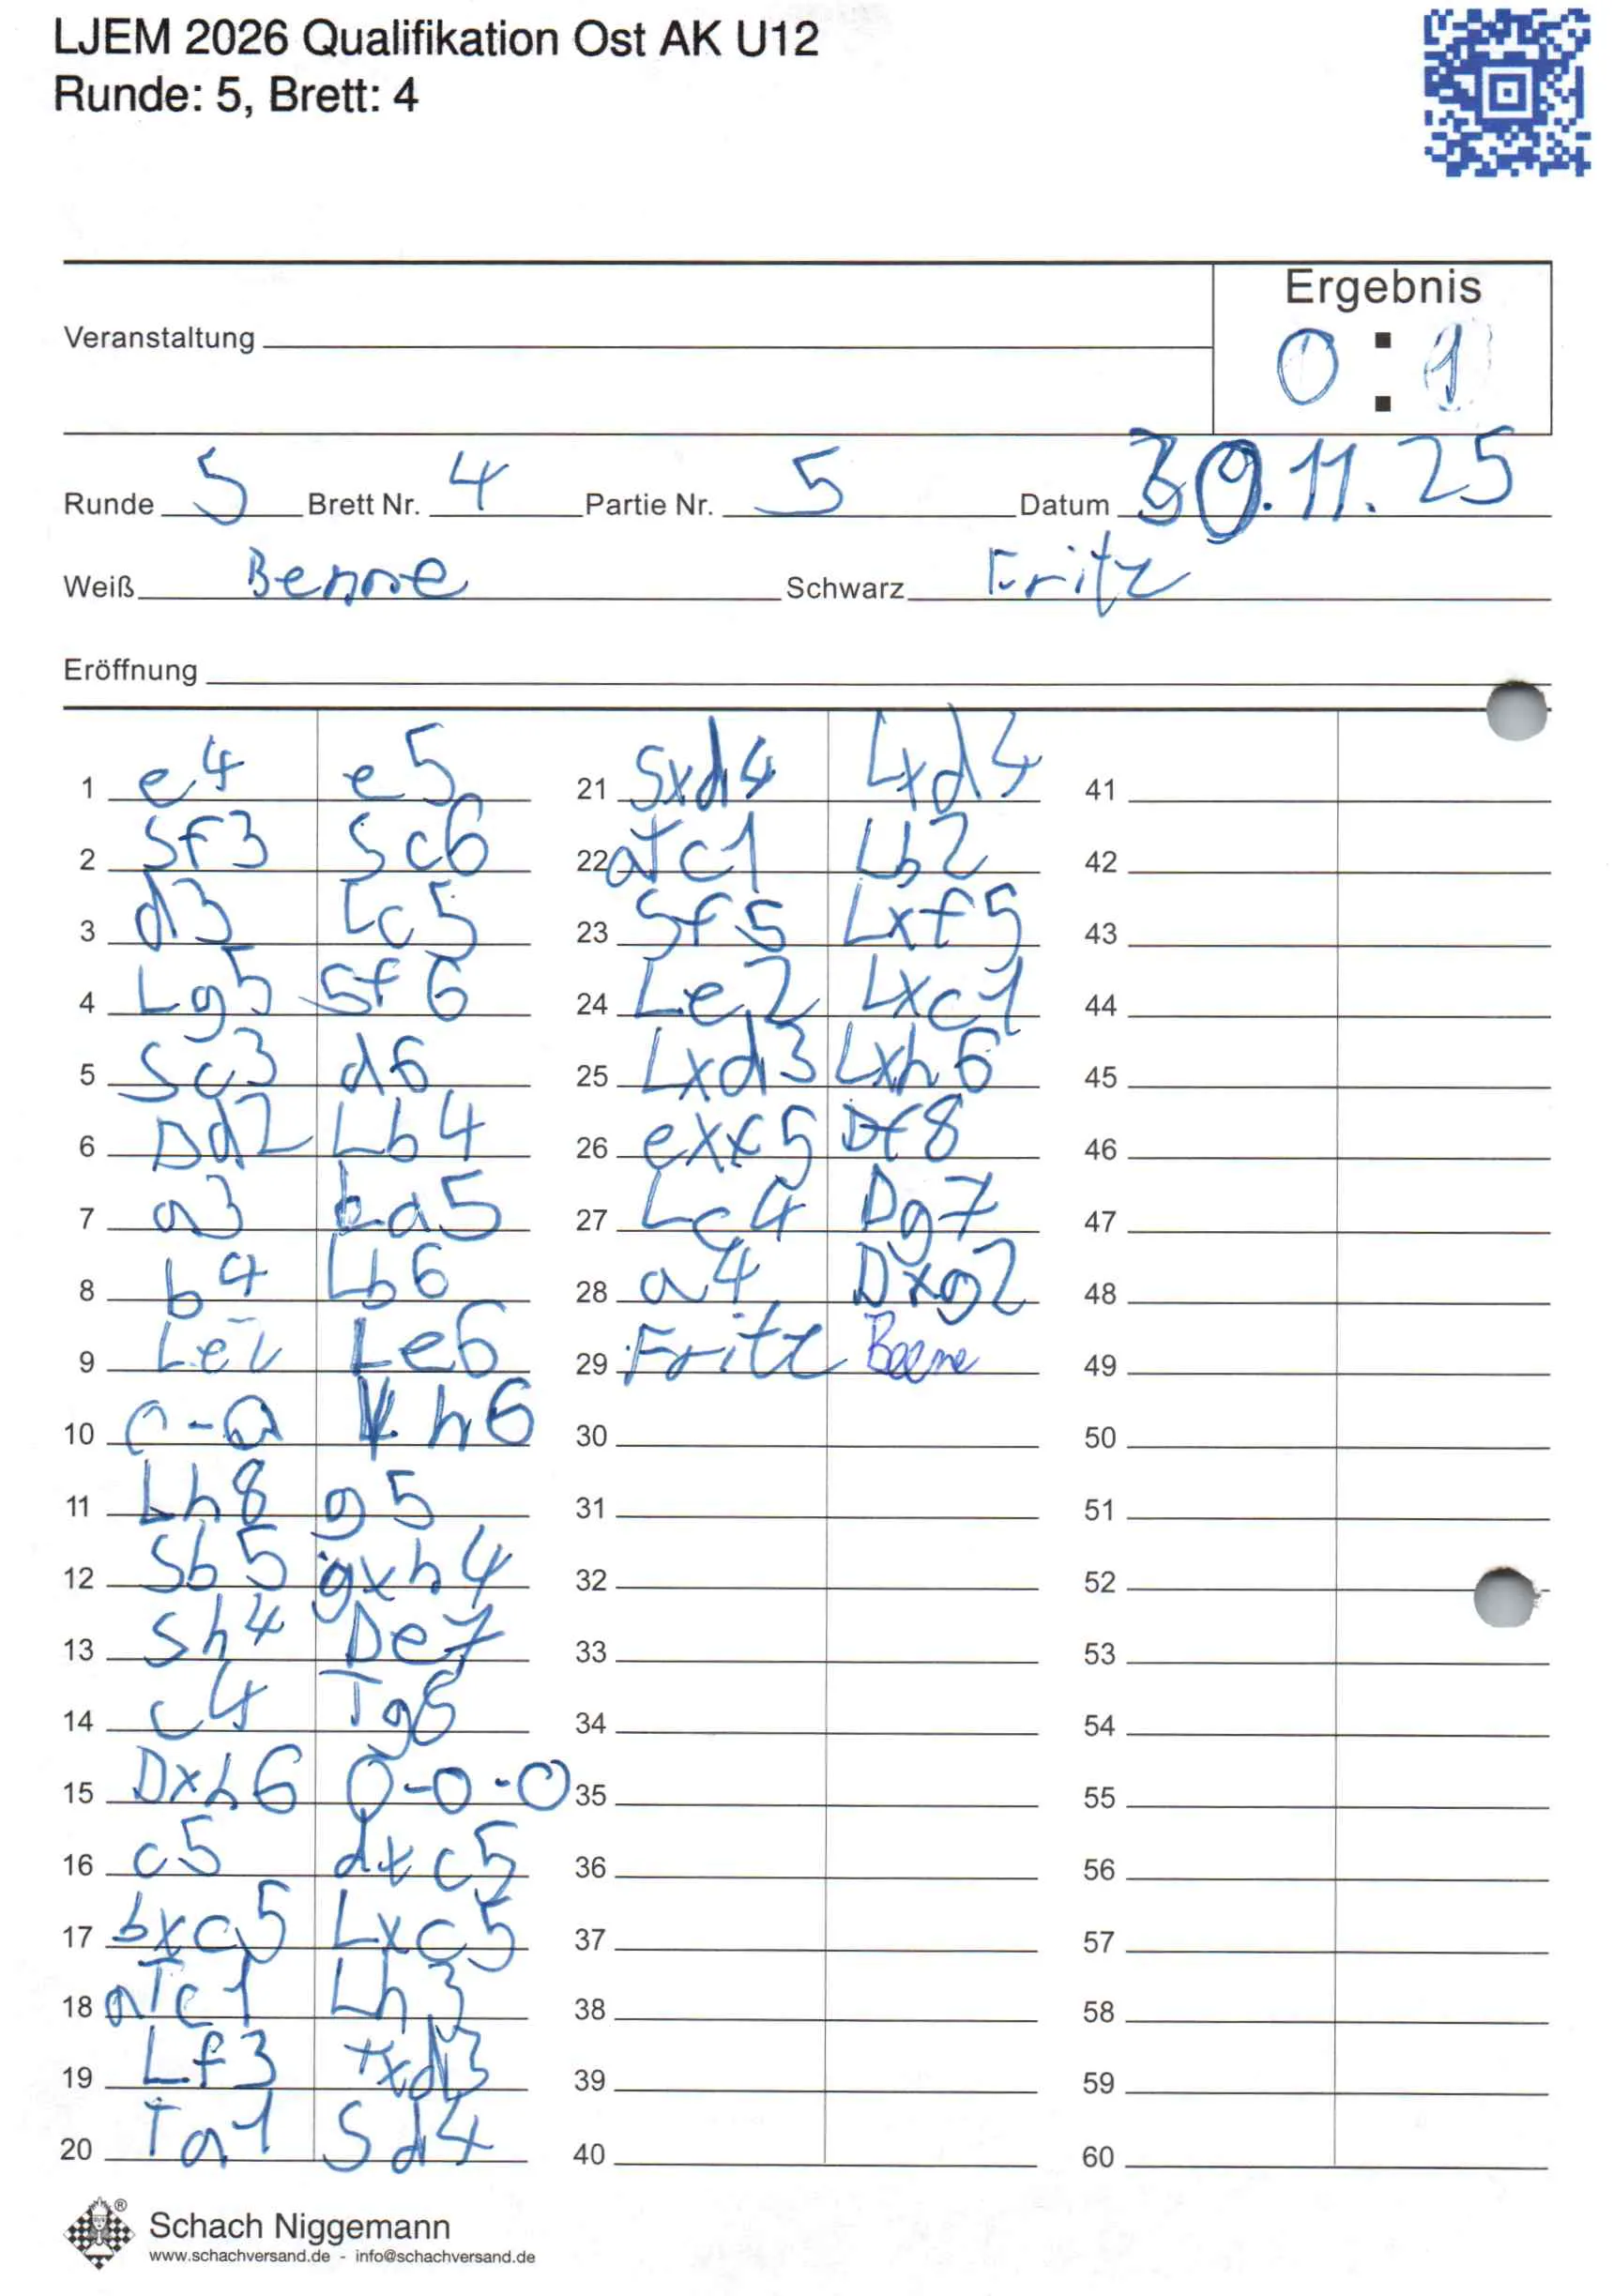 LJEM 2026 Qualifikation Ost AK U12
Runde: 5, Brett: 4
Ergebnis
0 : 1
Veranstaltung
Runde 5 Brett Nr. 4 Partie Nr. 5 Datum 30.11.25
Weiß Benne Schwarz Fritz
Eröffnung
1 e4 e5
2 Sf3 Sc6
3 d3 Lc5
4 Lg5 Sf6
5 Sc3 d6
6 Dd2 Lb4
7 a3 La5
8 b4 Lb6
9 Le2 Le6
10 0-0 h6
11 Lh8 g5
12 Sb5 gxh4
13 Sh4 De7
14 c4 Tg8
15 Dxh6 0-0-0
16 c5 dxc5
17 bxc5 Lxc5
18 aTc1 Lh3
19 Lf3 Txd3
20 Ta1 Sd4
21 Sxd4 Lxd4
22 aTc1 Lb2
23 Sf5 Lxf5
24 Le2 Lxc1
25 Lxd3 Lxh6
26 exf5 Df8
27 Lc4 Dg7
28 a4 Dxg2
29 Fritz Benne
30
31
32
33
34
35
36
37
38
39
40
41
42
43
44
45
46
47
48
49
50
51
52
53
54
55
56
57
58
59
60
Schach Niggemann
www.schachversand.de - info@schachversand.de